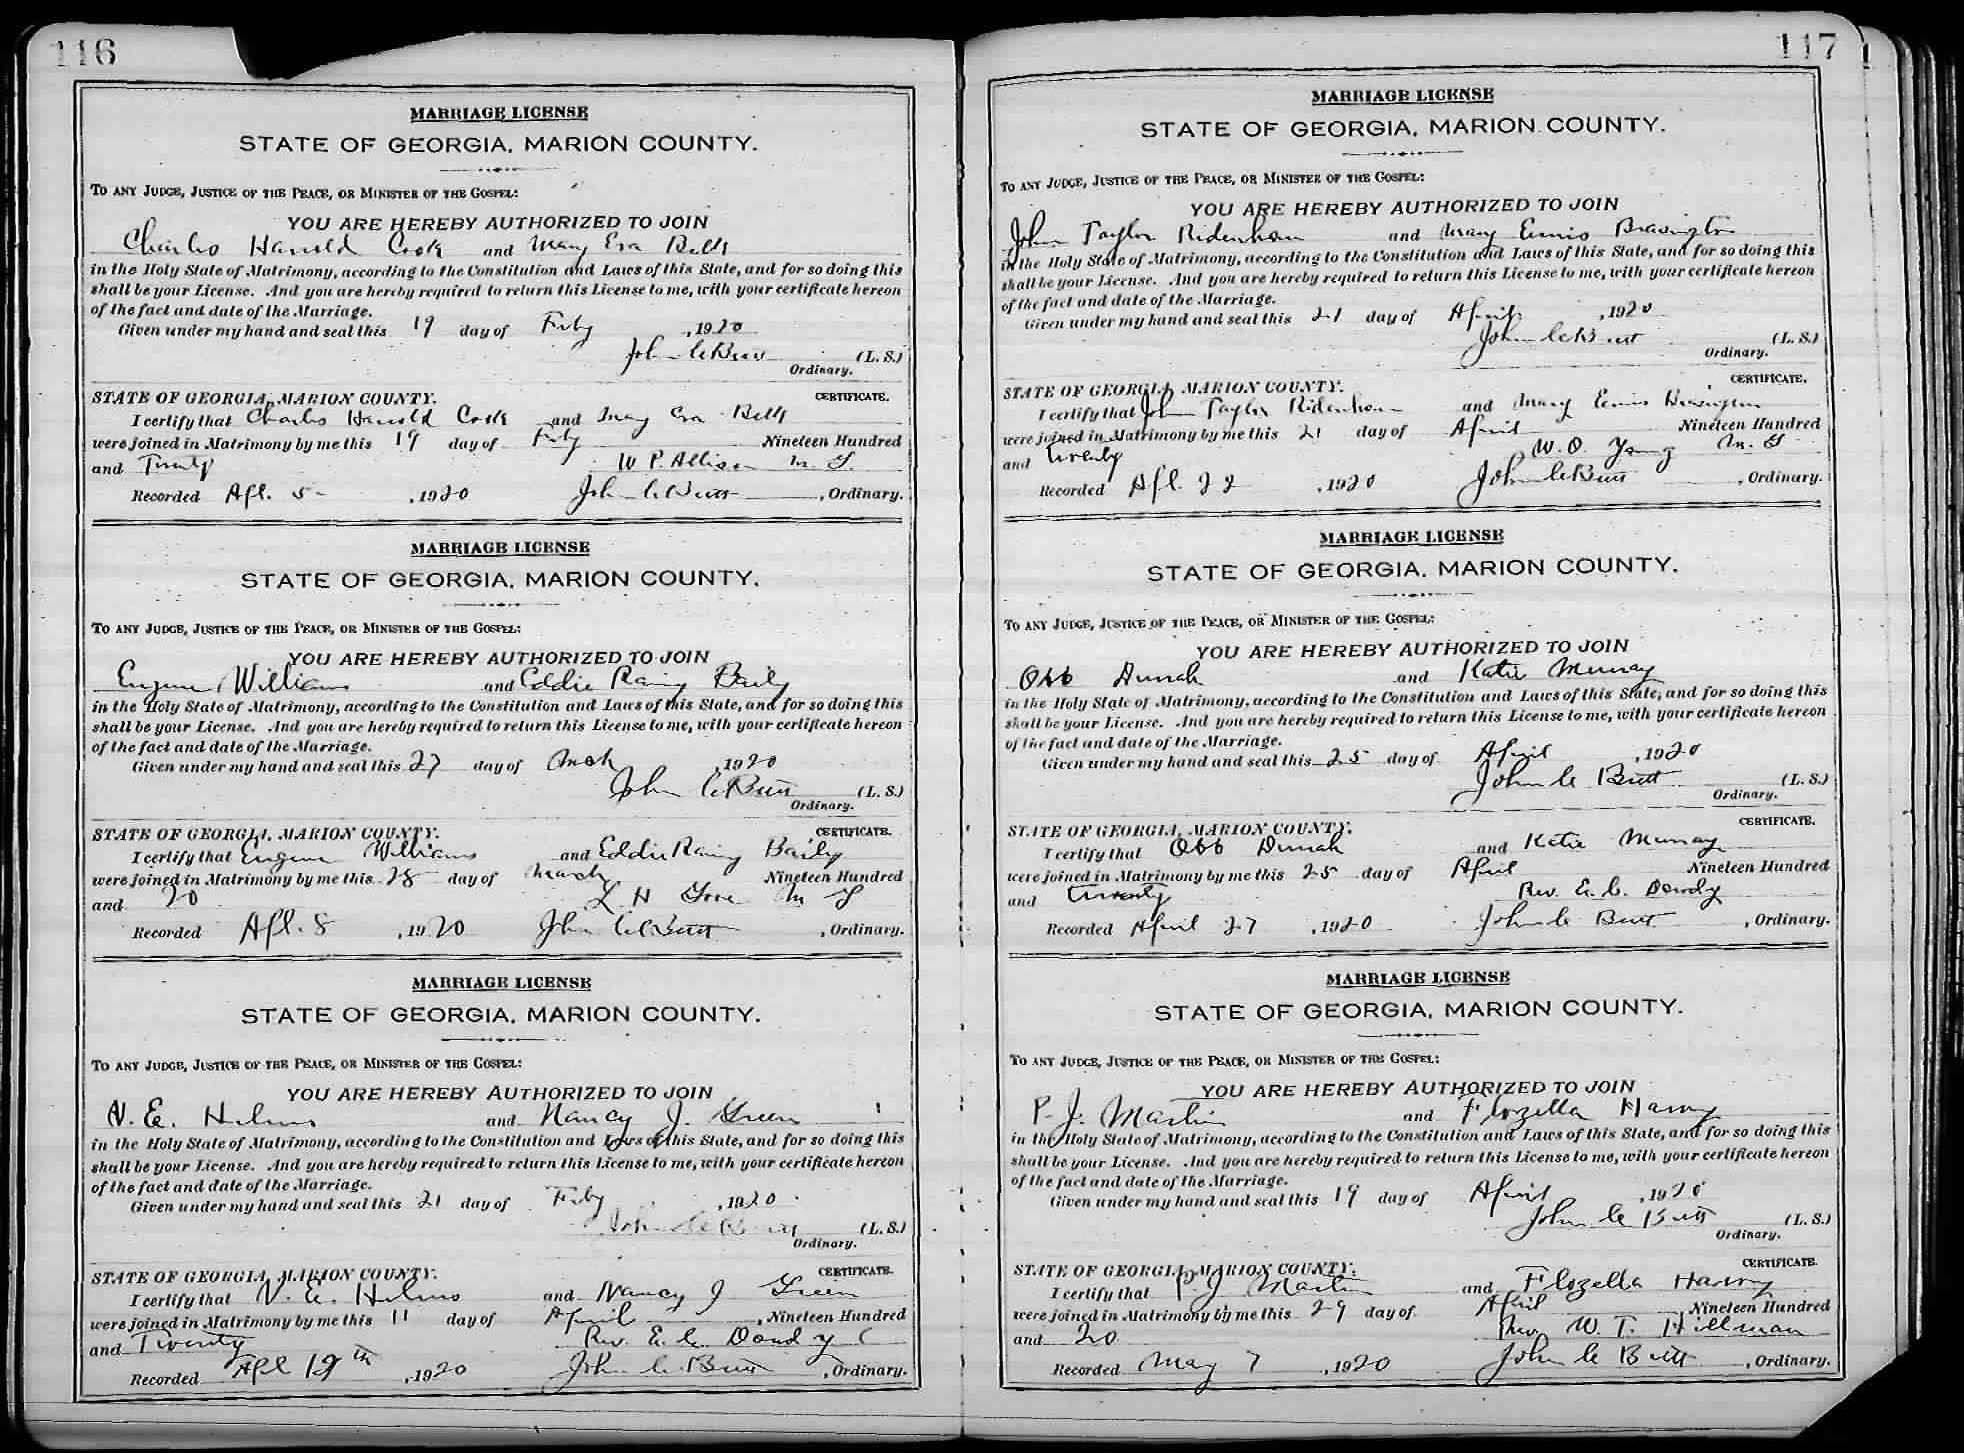 116
MARRIAGE LICENSE
STATE OF GEORGIA, MARION COUNTY.
TO ANY JUDGE, JUSTICE OF THE PEACE, OR MINISTER OF THE GOSPEL:
YOU ARE HEREBY AUTHORIZED TO JOIN
Charles Harold Cook and Mary Eva Bells
in the Holy State of Matrimony, according to the Constitution and Laws of this State, and for so doing this
shall be your License. And you are hereby required to return this License to me, with your certificate hereon
of the fact and date of the Marriage.
Given under my hand and seal this 19 day of Feby , 1920
John C Butt (L. S.)
Ordinary.
STATE OF GEORGIA, MARION COUNTY. CERTIFICATE.
I certify that Charles Harold Cook and Mary Eva Bells
were joined in Matrimony by me this 19 day of Feby Nineteen Hundred
and Twenty W P. Allison M. G.
Recorded Apl. 5 , 1920 John C Butt , Ordinary.
MARRIAGE LICENSE
STATE OF GEORGIA, MARION COUNTY.
TO ANY JUDGE, JUSTICE OF THE PEACE, OR MINISTER OF THE GOSPEL:
YOU ARE HEREBY AUTHORIZED TO JOIN
Eugene Williams and Eddie Rainy Baily
in the Holy State of Matrimony, according to the Constitution and Laws of this State, and for so doing this
shall be your License. And you are hereby required to return this License to me, with your certificate hereon
of the fact and date of the Marriage.
Given under my hand and seal this 27 day of Mch , 1920
John C Butt (L. S.)
Ordinary.
STATE OF GEORGIA, MARION COUNTY. CERTIFICATE.
I certify that Eugene Williams and Eddie Rainy Baily
were joined in Matrimony by me this 28 day of March Nineteen Hundred
and 20 L H M G
Recorded Apl. 8 , 1920 John C Butt , Ordinary.
MARRIAGE LICENSE
STATE OF GEORGIA, MARION COUNTY.
TO ANY JUDGE, JUSTICE OF THE PEACE, OR MINISTER OF THE GOSPEL:
YOU ARE HEREBY AUTHORIZED TO JOIN
V. E. Helms and Nancy J. Green
in the Holy State of Matrimony, according to the Constitution and Laws of this State, and for so doing this
shall be your License. And you are hereby required to return this License to me, with your certificate hereon
of the fact and date of the Marriage.
Given under my hand and seal this 21 day of Feby , 1920
John C Butt (L. S.)
Ordinary.
STATE OF GEORGIA, MARION COUNTY. CERTIFICATE.
I certify that V. E. Helms and Nancy J Green
were joined in Matrimony by me this 11 day of April , Nineteen Hundred
and Twenty Rev. E. C. Dowdy
Recorded Apl 19th , 1920 John C. Butt , Ordinary.
117
MARRIAGE LICENSE
STATE OF GEORGIA, MARION COUNTY.
TO ANY JUDGE, JUSTICE OF THE PEACE, OR MINISTER OF THE GOSPEL:
YOU ARE HEREBY AUTHORIZED TO JOIN
John Taylor Ridenhour and Mary Ennis Bravington
in the Holy State of Matrimony, according to the Constitution and Laws of this State, and for so doing this
shall be your License. And you are hereby required to return this License to me, with your certificate hereon
of the fact and date of the Marriage.
Given under my hand and seal this 21 day of April , 1920
John C Butt (L. S.)
Ordinary.
STATE OF GEORGIA, MARION COUNTY. CERTIFICATE.
I certify that John Taylor Ridenhour and Mary Ennis
were joined in Matrimony by me this 21 day of April Nineteen Hundred
and twenty W. O. Young M. G
Recorded Apl. 22 , 1920 John C Butt , Ordinary.
MARRIAGE LICENSE
STATE OF GEORGIA, MARION COUNTY.
TO ANY JUDGE, JUSTICE OF THE PEACE, OR MINISTER OF THE GOSPEL:
YOU ARE HEREBY AUTHORIZED TO JOIN
Obb Dunah and Katie Murray
in the Holy State of Matrimony, according to the Constitution and Laws of this State, and for so doing this
shall be your License. And you are hereby required to return this License to me, with your certificate hereon
of the fact and date of the Marriage.
Given under my hand and seal this 25 day of April , 1920
John C Butt (L. S.)
Ordinary.
STATE OF GEORGIA, MARION COUNTY. CERTIFICATE.
I certify that Obb Dunah and Katie Murray
were joined in Matrimony by me this 25 day of April Nineteen Hundred
and twenty Rev. E. C. Dowdy
Recorded April 27 , 1920 John C Butt , Ordinary.
MARRIAGE LICENSE
STATE OF GEORGIA, MARION COUNTY.
TO ANY JUDGE, JUSTICE OF THE PEACE, OR MINISTER OF THE GOSPEL:
YOU ARE HEREBY AUTHORIZED TO JOIN
P. J. Martin and Flozella Harvy
in the Holy State of Matrimony, according to the Constitution and Laws of this State, and for so doing this
shall be your License. And you are hereby required to return this License to me, with your certificate hereon
of the fact and date of the Marriage.
Given under my hand and seal this 19 day of April , 1920
John C Butt (L. S.)
Ordinary.
STATE OF GEORGIA, MARION COUNTY. CERTIFICATE.
I certify that P. J Martin and Flozella Harvy
were joined in Matrimony by me this 29 day of April Nineteen Hundred
and 20 Rev. W. T. Hillman
Recorded May 7 , 1920 John C Butt , Ordinary.